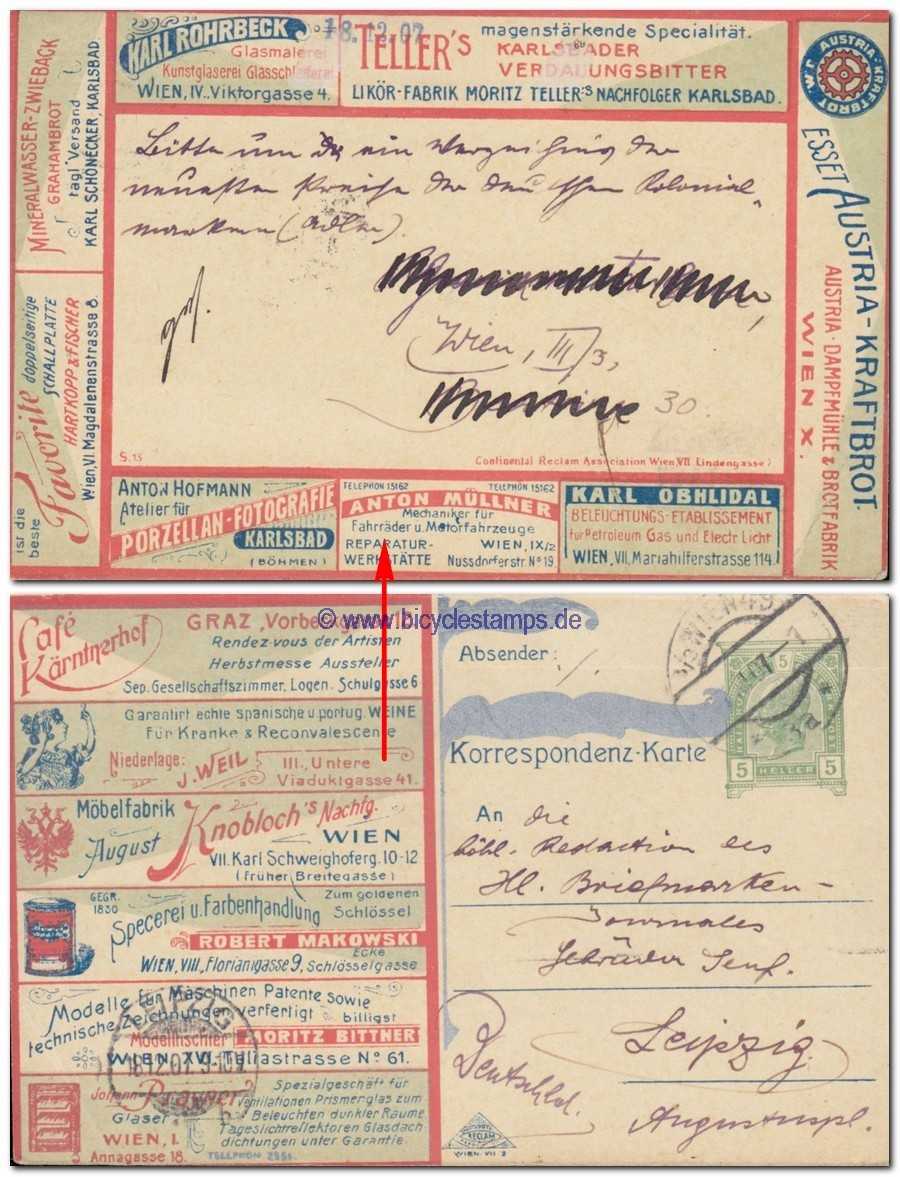 KARL ROHRBECK
Glasmalerei
Kunstglaserei Glasschleiferei
WIEN, IV. Viktorgasse 4.
18.12.07
TELLER'S magenstärkende Specialität.
KARLSBADER
VERDAUUNGSBITTER
LIKÖR-FABRIK MORITZ TELLER'S NACHFOLGER KARLSBAD.
AUSTRIA-KRAFTBROT W J
MINERALWASSER-ZWIEBACK
GRAHAMBROT
tägl Versand
KARL SCHÖNECKER, KARLSBAD.
ist die beste
Favorite doppelseitige
SCHALLPLATTE
HARTKOPP & FISCHER
Wien, VI. Magdalenenstrasse 8
Bitte um ein Verzeichnis der
neuesten Preise der deutschen Kolonial
marken (Adler).
Wien, III/3,
30.
S. 13
Continental Reclam Association Wien, VII. Lindengasse 7
ESSET AUSTRIA-KRAFTBROT.
AUSTRIA-DAMPFMÜHLE & BROTFABRIK
WIEN X.
ANTON HOFMANN
Atelier für
PORZELLAN-FOTOGRAFIE
KARLSBAD
(BÖHMEN)
TELEPHON 15162 TELEPHON 15162
ANTON MÜLLNER
Mechaniker für
Fahrräder u. Motorfahrzeuge
REPARATUR- WIEN, IX/2
WERKSTÄTTE Nussdorferstr. No 19
KARL OBHLIDAL
BELEUCHTUNGS-ETABLISSEMENT
für Petroleum Gas und Electr. Licht
WIEN, VII. Mariahilferstrasse 114.
© www.bicyclestamps.de
Café Kärntnerhof
GRAZ
Rendez-vous der Artisten
Herbstmesse Aussteller
Sep. Gesellschaftszimmer, Logen. Schulgasse 6
Garantirt echte spanische u. portug. WEINE
Für Kranke & Reconvalescente
Niederlage: J. WEIL III., Untere
Viaduktgasse 41.
Möbelfabrik
August Knobloch's Nachfg.
WIEN
VII. Karl Schweighoferg. 10-12
(früher Breitegasse)
GEGR. 1830
Specerei u. Farbenhandlung
Zum goldenen
Schlössel
ROBERT MAKOWSKI
Ecke
WIEN, VIII., Florianigasse 9, Schlösselgasse
Modelle für Maschinen Patente sowie
technische Zeichnungen verfertigt billigst
Modelltischler MORITZ BITTNER
WIEN, XVI. Tellastrasse No 61.
LEIPZIG
18.12.07.
Johann
Glaser
WIEN, I.
Annagasse 18.
Spezialgeschäft für
Ventilationen Prismerglas zum
Beleuchten dunkler Räume
Tageslichtreflektoren Glasdach
dichtungen unter Garantie.
TELEPHON
Absender:
WIEN 49
Korrespondenz-Karte
5 HELLER 5
An die
löbl. Redaction des
Ill. Briefmarken-
Journales
Gebrüder Senf.
Leipzig.
Deutschld.
Augustuspl.
RECLAM
WIEN. VII 2